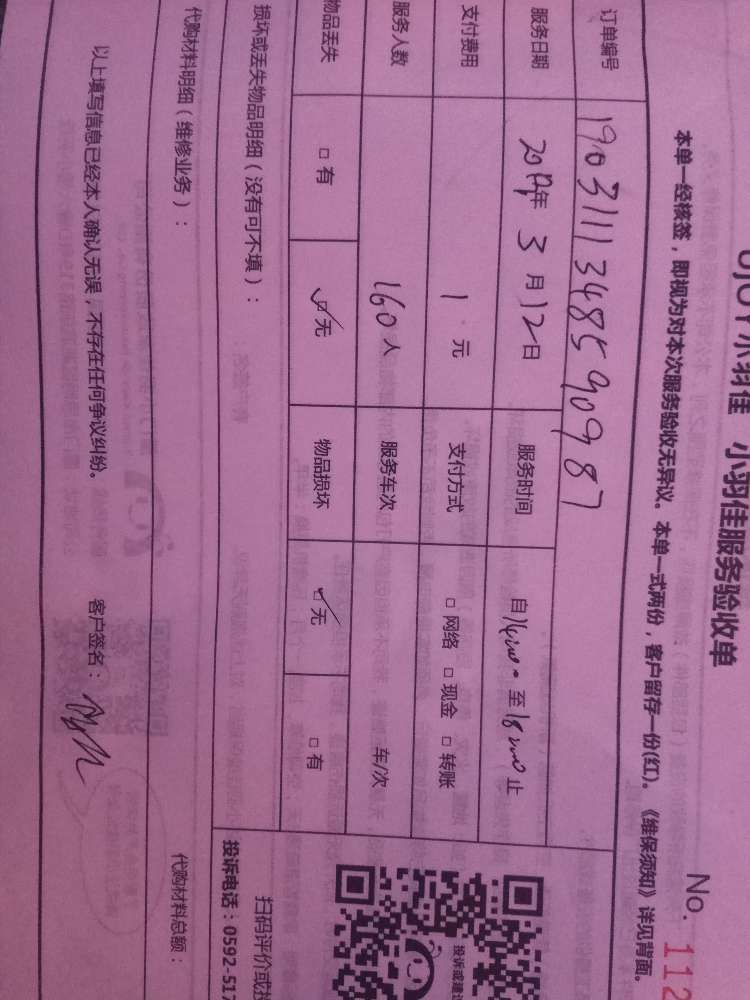 小羽佳 小羽佳服务验收单
No. 112
本单一经核签，即视为对本次服务验收无异议。本单一式两份，客户留存一份(红)。《维保须知》详见背面。
订单编号 190311134859 0987
服务日期 2019年 3 月 12日 服务时间 自 14:00 至 18:00 止
支付费用 1 元 支付方式 □ 网络 □ 现金 □ 转账
服务人数 160 人 服务车次 车/次
物品丢失 □ 有 ☑ 无 物品损坏 ☑ 无 □ 有
损坏或丢失物品明细（没有可不填）：
投诉或建议
扫码评价或投
投诉电话：0592-517
代购材料明细（维修业务）： 代购材料总额：
以上填写信息已经本人确认无误，不存在任何争议纠纷。 客户签名：